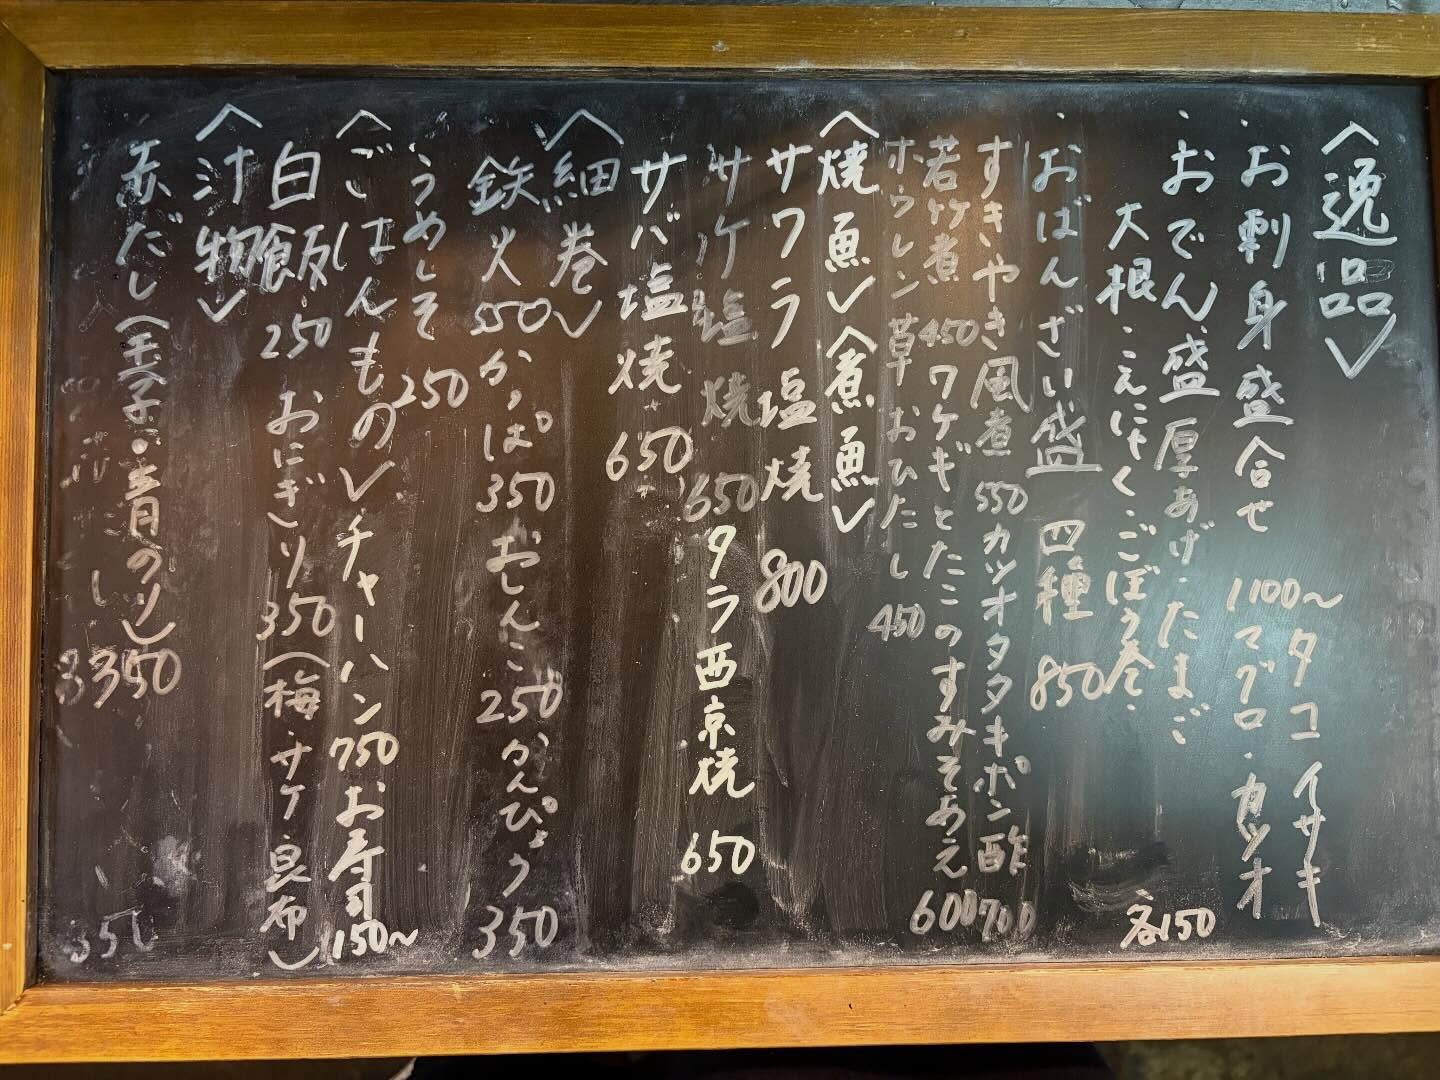 〈逸品〉
・お刺身盛合せ 1100〜 タコ イサキ
マグロ・カツオ
・おでん盛 厚あげ・たまご
大根・こんにゃく・ごぼう巻・ 各150
・おばんざい盛 四種 850
すきやき風煮 550 カツオタタキポン酢 700
若竹煮 450 ワケギとたこのすみそあえ 600
ホウレン草おひたし 450
〈焼魚〉〈煮魚〉
サワラ塩焼 800
サケ塩焼 650 タラ西京焼 650
サバ塩焼 650
〈細巻〉
鉄火 550 かっぱ 350 おしんこ 250 かんぴょう 350
うめしそ 250
〈ごはんもの〉・チャーハン 750 お寿司 150〜
白飯・250 おにぎり 350 (梅・サケ・昆布)
〈汁物〉
赤だし(玉子・青のり) 350
350